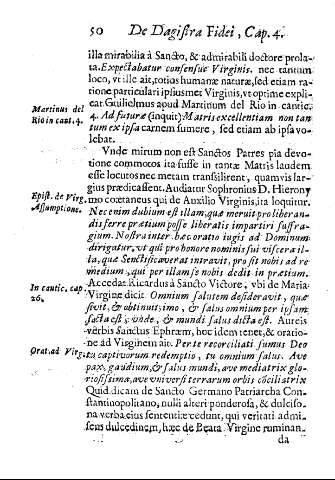 50 De Dagistra Fidei, Cap. 4.
illa mirabilia à Sancto, & admirabili doctore prola-
ta. Expectabatur consensus Virginis. nec tantum
loco, vt ille ait, totius humanæ naturæ, sed etiam ra-
tione particulari ipsiusmet Virginis, vt optime expli-
cat Guilielmus apud Martinum del Rio in cantic.
Martinus del
Rio in cant. 4.
4. Ad futuræ (inquit) Matris excellentiam non tan
tum ex ipsa carnem sumere, sed etiam ab ipsa vo-
lebat.
Vnde mirum non est Sanctos Patres pia devo-
tione commotos ita fuisse in tantæ Matris laudem
esse locutos nec metam transilirent, quamvis lar-
gius prædicassent. Audiatur Sophronius D. Hierony
Epist. de Virg.
Assumptione.
mo coætaneus qui de Auxilio Virginis, ita loquitur.
Nec enim dubium est illam, quæ meruit pro liberan-
dis ferre prætium posse liberatis impartiri suffra-
gium. Nostra inter hæc oratio iugis ad Dominum
dirigatur, vt qui pro honore nomini sui viscera il-
la, quæ Sanctificaverat intravit, pro sit nobis ad re-
medium, qui per illam se nobis dedit in prætium.
Accedat Ricardus à Sancto Victore, vbi de Maria
In cantic. cap.
26.
Virgine dicit. Omnium salutem desideravit, quæ
sivit, & obtinuit; imo, & salus omnium per ipsam
facta est; & mundi salus dicta est. Aureis
verbis Sanctus Ephræm, hoc idem tenet, & oratio-
ne ad Virginem ait. Per te reconciliati sumus Deo
Orat. ad Virg.
tu captivorum redemptio, tu omnium salus. Ave
pax, gaudium, & salus mundi, ave mediatrix glo-
riosissima, ave vniversi terrarum orbis cõciliatrix
Quid dicam de Sancto Germano Patriarcha Con-
stantinopolitano, nulli alteri ponderosa, & dulciso-
na verba, eius sententiæ cedunt, qui veritati admi-
sens dulcedinem, hæc de Beata Virgine ruminan.
da